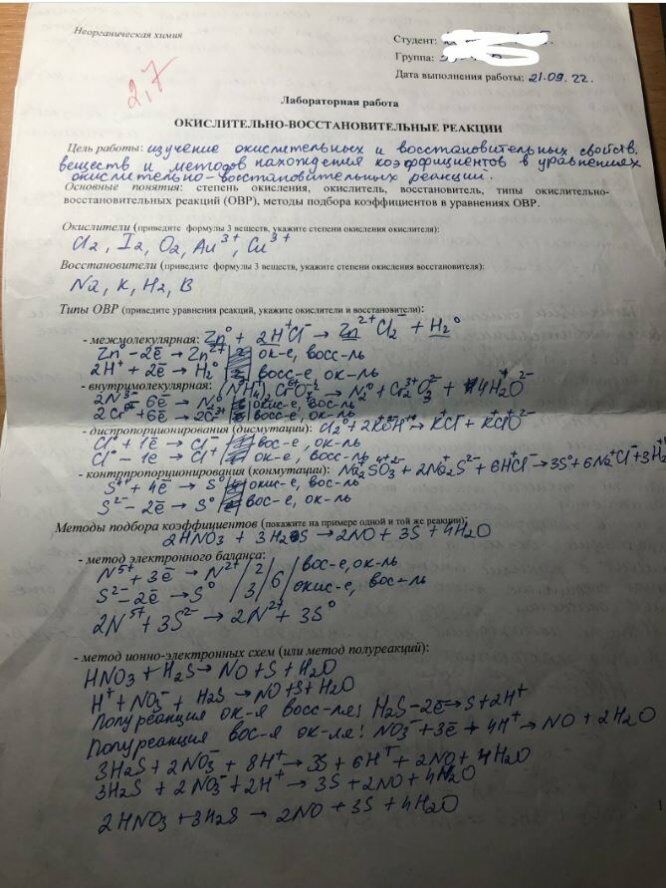 Неорганическая химия
Студент:
Группа:
Дата выполнения работы: 21.09.22.
2,7
Лабораторная работа
ОКИСЛИТЕЛЬНО-ВОССТАНОВИТЕЛЬНЫЕ РЕАКЦИИ
Цель работы: изучение окислительных и восстановительных свойств
веществ и методов нахождения коэффициентов в уравнениях
окислительно-восстановительных реакций.
Основные понятия: степень окисления, окислитель, восстановитель, типы окислительно-
восстановительных реакций (ОВР), методы подбора коэффициентов в уравнениях ОВР.
Окислители (приведите формулы 3 веществ, укажите степени окисления окислителя):
Cl2, I2, O2, Au³⁺, Cu³⁺
Восстановители (приведите формулы 3 веществ, укажите степени окисления восстановителя):
Na, K, H2, B
Типы ОВР (приведите уравнения реакций, укажите окислители и восстановители):
- межмолекулярная: Zn⁰ + 2H⁺Cl⁻ → Zn²⁺Cl2⁻ + H2⁰
Zn⁰ - 2ē → Zn²⁺ ок-е, восс-ль
2H⁺ + 2ē → H2⁰ восс-е, ок-ль
- внутримолекулярная: (N³⁻H4)2Cr2⁶⁺O7 → N2⁰ + Cr2³⁺O3²⁻ + 4H2O²⁻
2N³⁻ - 6ē → N2⁰ окис-е, вос-ль
2Cr⁶⁺ + 6ē → 2Cr³⁺ восс-е, ок-ль
- диспропорционирования (дисмутации): Cl2⁰ + 2KOH → KCl + KClO
Cl⁰ + 1ē → Cl⁻ вос-е, ок-ль
Cl⁰ - 1ē → Cl⁺ ок-е, восс-ль
- контрпропорционирования (конмутации): Na2SO3 + 2Na2S²⁻ + 6HCl → 3S⁰ + 6Na⁺Cl⁻ + 3H2
S⁴⁺ + 4ē → S⁰ окис-е, вос-ль
S²⁻ - 2ē → S⁰ вос-е, ок-ль
Методы подбора коэффициентов (покажите на примере одной и той же реакции):
2HNO3 + 3H2S → 2NO + 3S + 4H2O
- метод электронного баланса:
N⁵⁺ + 3ē → N²⁺ / 2 / вос-е, ок-ль
S²⁻ - 2ē → S⁰ / 3 / 6 / окис-е, вос-ль
2N⁵⁺ + 3S²⁻ → 2N²⁺ + 3S⁰
- метод ионно-электронных схем (или метод полуреакций):
HNO3 + H2S → NO + S + H2O
H⁺ + NO3⁻ + H2S → NO + S + H2O
Полуреакция ок-я восс-ля: H2S - 2ē → S + 2H⁺
Полуреакция вос-я ок-ля: NO3⁻ + 3ē + 4H⁺ → NO + 2H2O
3H2S + 2NO3⁻ + 8H⁺ → 3S + 6H⁺ + 2NO + 4H2O
3H2S + 2NO3⁻ + 2H⁺ → 3S + 2NO + 4H2O
2HNO3 + 3H2S → 2NO + 3S + 4H2O